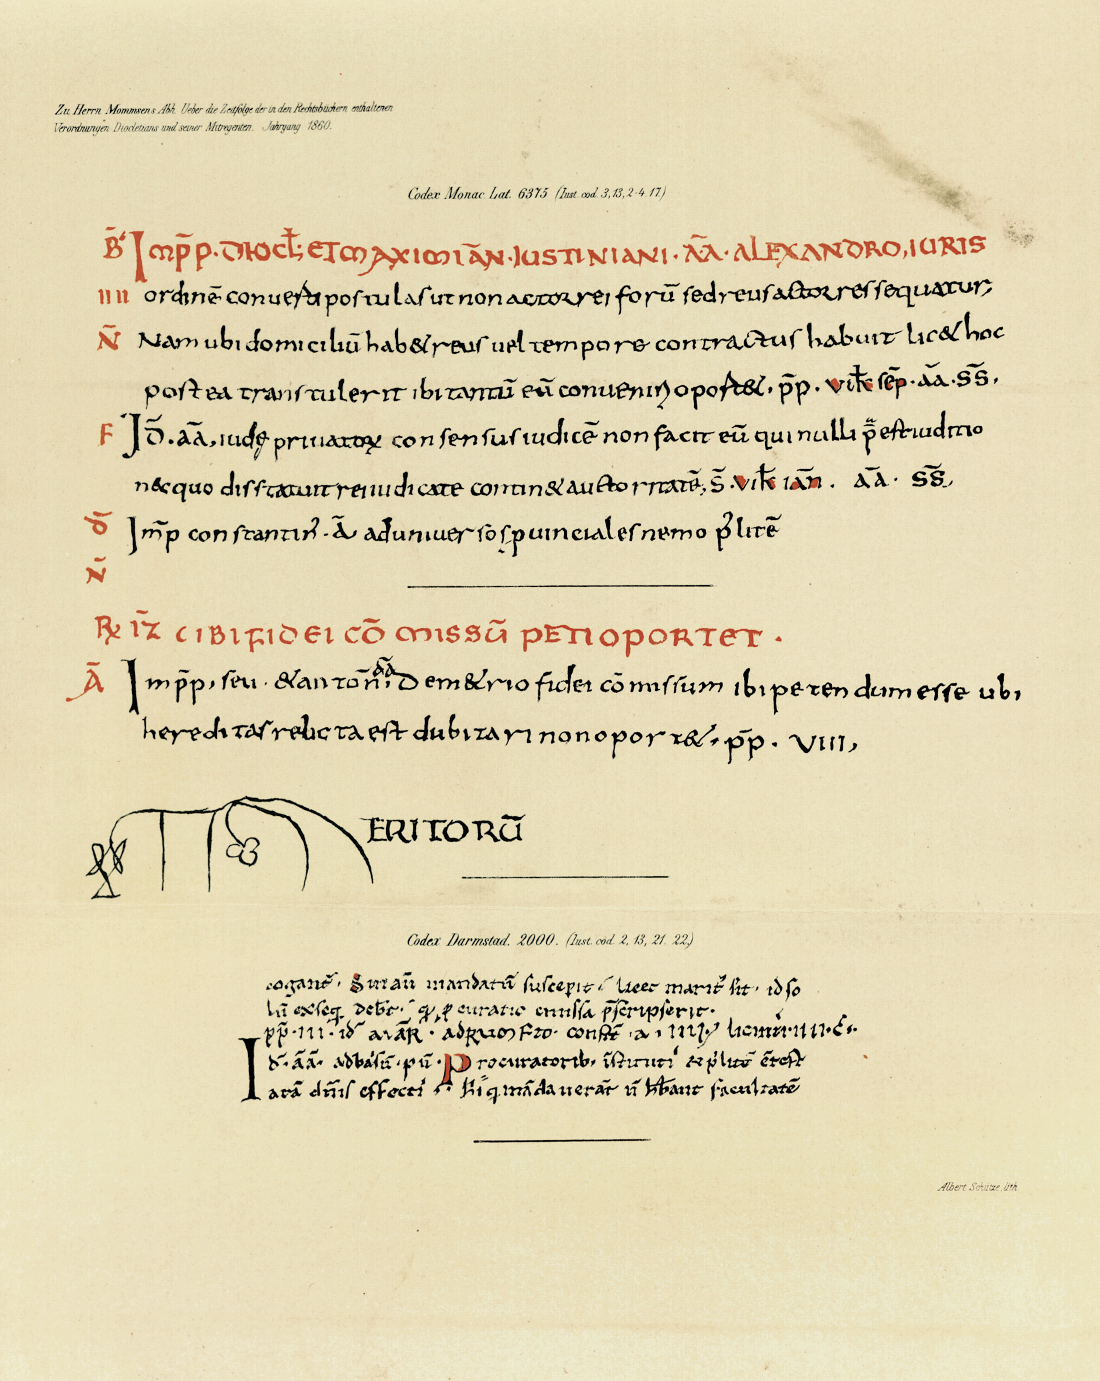 Zu Herrn Mommsens Abh. Ueber die Zeitfolge der in den Rechtsbüchern enthaltenen
Verordnungen Diocletians und seiner Mitregenten. Jahrgang 1860.
Codex Monac. Lat. 6375 (Iust. cod. 3,13,2-4. 17.)
B̄ Imp̄p. DIOCƚ; ET MAXIMIĀN. IUSTINIANI. ĀĀ. ALEXANDRO, IURIS
IIII ordinē conuersti postulas ut non actor rei forū sed reus actoris sequatur;
N̄ Nam ubi domiciliū hab& reus uel tempore contractus habuit lic& hoc
postea transtulerit ibi tantū eū conueniri oport&. p̄p. sep̄. ĀĀ. S̄S̄.
F ID̄. ĀĀ, iudę priuatorꝝ consensus iudicē non facit eū qui nulli p̄ est iuditio
nec quo dis statuit rei iudicate contin& auctoritatē; S̄. iān. ĀĀ. S̄S̄,
D̄ Im̄p constantiñ. Ā ad uniuersos puinciales nemo p̄ litē
N̄
IZ̄ C IBI FIDEI CŌMISSŪ PETI OPORTET.
Ā Imp̄p, seu. & antoñ, ĀĀ Dem&rio fidei cōmissum ibi petendum esse ubi
hereditas relicta est dubitari non oport&, p̄p. VIII,
ERITORŪ
Codex Darmstad. 2000. (Iust. cod. 2, 13, 21. 22.)
mandatū suscepit licet marit' sit. id so
lū exseq. deb&. curatio emissa p̄scripserit.
pp̄. III. id' constñ. a. IIII
D. ĀĀ. p Procuratorib. īstituti
ata dn̄is effecti māda uerāt n̄ hb̄ant facultatē
Albert Schütze, lith.